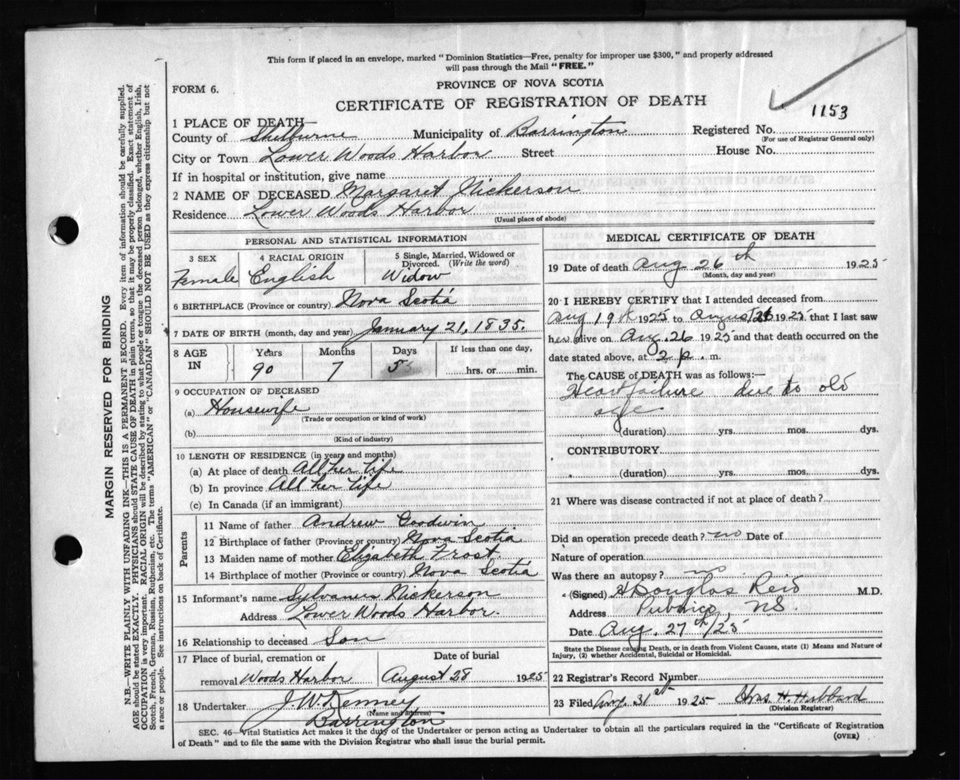 This form if placed in an envelope, marked "Dominion Statistics—Free, penalty for improper use $300," and properly addressed
will pass through the Mail "FREE."
FORM 6.
PROVINCE OF NOVA SCOTIA
CERTIFICATE OF REGISTRATION OF DEATH
1153
1 PLACE OF DEATH
County of Shelburne Municipality of Barrington Registered No.
(For use of Registrar General only)
City or Town Lower Woods Harbor Street House No.
If in hospital or institution, give name
2 NAME OF DECEASED Margaret Nickerson
Residence Lower Woods Harbor
(Usual place of abode)
PERSONAL AND STATISTICAL INFORMATION
3 SEX 4 RACIAL ORIGIN 5 Single, Married, Widowed or
Divorced. (Write the word)
Female English Widow
6 BIRTHPLACE (Province or country) Nova Scotia
7 DATE OF BIRTH (month, day and year) January 21, 1835.
8 AGE IN Years Months Days If less than one day,
90 7 5 hrs. or min.
9 OCCUPATION OF DECEASED
(a) Housewife
(Trade or occupation or kind of work)
(b)
(Kind of industry)
10 LENGTH OF RESIDENCE (in years and months)
(a) At place of death All her life
(b) In province All her life
(c) In Canada (if an immigrant)
Parents
11 Name of father Andrew Goodwin
12 Birthplace of father (Province or country) Nova Scotia
13 Maiden name of mother Elizabeth Frost
14 Birthplace of mother (Province or country) Nova Scotia
15 Informant's name Sylvanus Nickerson
Address Lower Woods Harbor.
16 Relationship to deceased Son
17 Place of burial, cremation or Date of burial
removal Woods Harbor August 28 1925
18 Undertaker J. W. Kenney
(Name and address)
Barrington
MEDICAL CERTIFICATE OF DEATH
19 Date of death Aug 26th 1925
(Month, day and year)
20 I HEREBY CERTIFY that I attended deceased from
Aug 19th 1925 to August 26 1925 that I last saw
her alive on Aug. 26 1925 and that death occurred on the
date stated above, at 2 p. m.
The CAUSE OF DEATH was as follows:—
Heart failure due to old
age
(duration) yrs. mos. dys.
CONTRIBUTORY
(duration) yrs. mos. dys.
21 Where was disease contracted if not at place of death?
Did an operation precede death? no Date of
Nature of operation
Was there an autopsy? no
(Signed) Douglas Reid M.D.
Address Pubnico, N.S.
Date Aug. 27th/25
State the Disease causing Death, or in death from Violent Causes, state (1) Means and Nature of
Injury, (2) whether Accidental, Suicidal or Homicidal.
22 Registrar's Record Number
23 Filed Aug. 31st 1925 H. Hubbard
(Division Registrar)
SEC. 46—Vital Statistics Act makes it the duty of the Undertaker or person acting as Undertaker to obtain all the particulars required in the "Certificate of Registration
of Death" and to file the same with the Division Registrar who shall issue the burial permit.
(OVER)
MARGIN RESERVED FOR BINDING
N.B.—WRITE PLAINLY WITH UNFADING INK—THIS IS A PERMANENT RECORD. Every item of information should be carefully supplied.
AGE should be stated EXACTLY. PHYSICIANS should STATE CAUSE OF DEATH in plain terms, so that it may be properly classified. Exact statement of
OCCUPATION is very important. RACIAL ORIGIN will be described by stating to what people or tongue the deceased person belonged, whether English, Irish,
Scotch, French, German, Russian, Ruthenian, etc. The terms "AMERICAN" or "CANADIAN" SHOULD NOT BE USED as they express citizenship but not
a race or people. See instructions on back of Certificate.